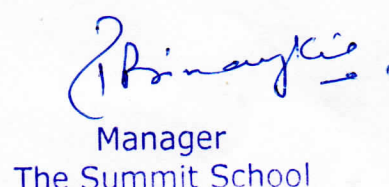 Manager
The Summit School